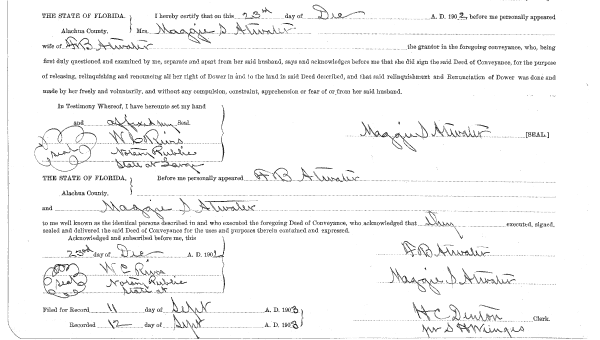 THE STATE OF FLORIDA. I hereby certify that on this 23rd day of Dec A. D. 1902 before me personally appeared
Alachua County. Mrs. Maggie S Atwater
wife of F B Atwater the grantor in the foregoing conveyance, who, being
first duly questioned and examined by me, separate and apart from her said husband, says and acknowledges before me that she did sign the said Deed of Conveyance, for the purpose
of releasing, relinquishing and renouncing all her right of Dower in and to the land in said Deed described, and that said relinquishment and Renunciation of Dower was done and
made by her freely and voluntarily, and without any compulsion, constraint, apprehension or fear of or from her said husband.
In Testimony Whereof, I have hereunto set my hand
and affixed my Seal
seal W E Rivas Maggie S Atwater [SEAL]
Notary Public
State at Large
THE STATE OF FLORIDA. Before me personally appeared F B Atwater
Alachua County.
and Maggie S Atwater
to me well known as the identical persons described in and who executed the foregoing Deed of Conveyance, who acknowledged that they executed, signed,
sealed and delivered the said Deed of Conveyance for the uses and purposes therein contained and expressed.
Acknowledged and subscribed before me, this
23rd day of Dec A. D. 190 F B Atwater
seal W E Rivas Maggie S Atwater
Notary Public
State at
Filed for Record 11 day of Sept A. D. 1903 H C Denton Clerk.
Recorded 12 day of Sept 1903 pr S H Wienges